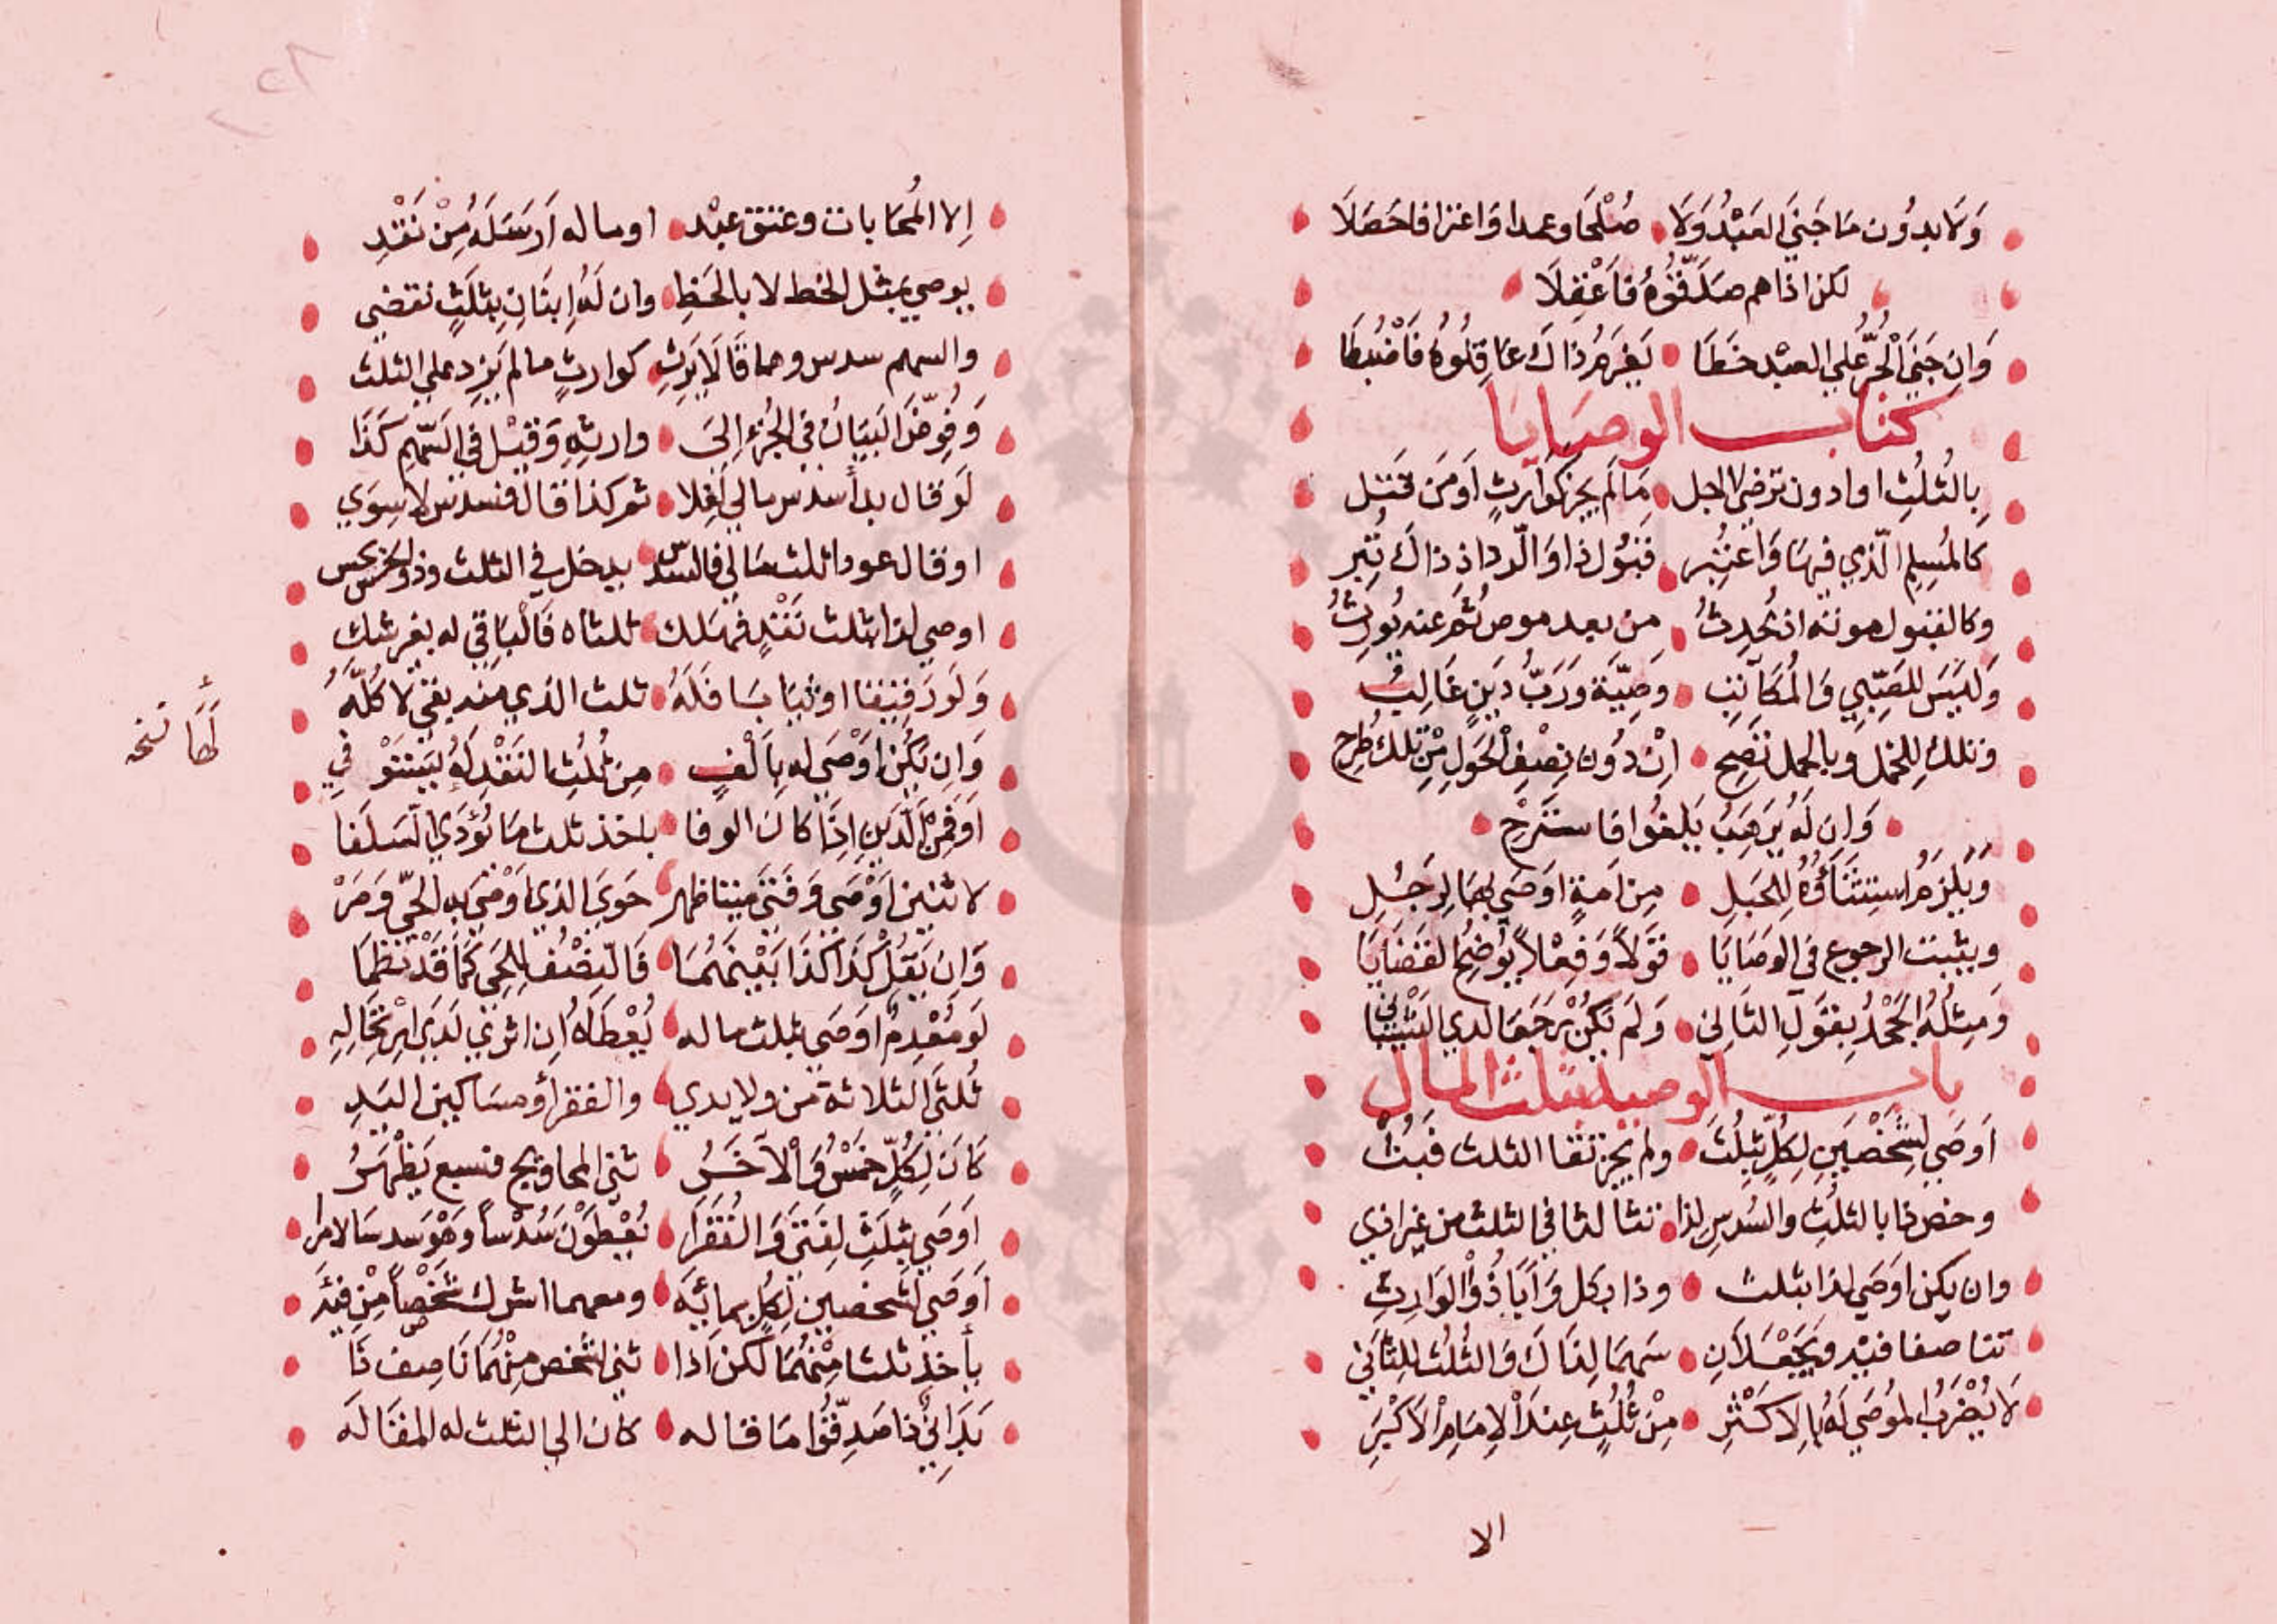 وَلَا يدوُن مَا جَنَي العَبْدُ وَلَا صُلْحَا وعمدا وَاعترافا حَصَلَا
لكن اذا هم صَدَّقُوهُ فاَعْقِلَا
وَاِن جَنَي الْحُرُّ عَلي العبْد خَطَا يَغرَمُ ذاكَ عَاقِلُوهُ فَاضْبُطَا
كتاب الوصَايَا
بِالثُلُثِ اوادون ترضي لاجل مَا لَم يجز كوَارثٍ اَو مَن قَتل
كالمُسِلِم الّذي فيهَا وَاعتُبِر قبُول ذا وَالّرد اذ ذاكَ
وكالقبول موته اذ يُحدِثُ من بعد موص ثُمَّ عنه يُورَثُ
وَليَسَ للصَبِّي وَالمُكَاتِب وصِيَّة وَرَبُّ دَينٍ غَالِبُ
وتلك لِلحَمل وبالحمل تَصِح اِنْ دُون نِصْفِ الْحَوَلِ مِنْ تلك طُرِح
وَاِن لَهُ يرَهِبُ يَلغُوا فاستَرِحْ
وَيَلزَمُ استِثنَآؤُهُ لِلحَبَلِ مِن اَمَةٍ اوَصَي بهَا لِرَجُلِ
ويثبت الرجوع في الوصَايَا قَولاً وَفِعْلاً يوُضِحُ القضَايَا
وَمِثلُهُ الجَحْدُ بِقَولِ الثَانِي وَلَم يَكُنْ مَرجَعَا لدي
باب الوصية بثلث المال
اَوصَي لِشَخْصَينِ لِكُلٍّ ثلِثُ ولم يجز تقا الثلث
وخصّ ذا بالثلُثِ والسُدسِ لِذا تثالثا في الثلث من غير اذي
وان يكن اوصَي لذا بثلث وذا بكل وَاَبَا ذُوْا الوَارِثِ
تناصفا فيْه وَيَجْعَلَانِ سَهمَا لِذَاكَ وَالثُلُث لِلِثَانِي
لَا يُضْرَبُ الموُصَي لَهُ بِالِاكثَرِ مِنْ ثُلُثٍ عِندَ الْاِمَامِ الْاَكْبَرِ
الا
اِلا المُحَابات وعتق عبْد اوماله اَرسَلَهُ مِنْ نَقْدِ
يوصي بمثل الحظ لا بالحَظِ وان لَهُ اِبنَانِ بِثلثٍ تقضي
والسهم سدس وهما قَا لَا يَرِثِ كوارثٍ مالم يَزِد علي الثلث
وَفُوِّضَ البَيَانُ في الجُزءِ اِلىَ وارثِهِ وَقيْل في السَّهمِ كَذَا
لَو قال بدأً سدس مالي اَفلا ثم كذا قال فسدس لا سِوَي
اوقاله عودا ثلث مَالي فالسّدس يدخل في الثلث وذو
اوصي لذا بثلث نَقْدٍ فَهَلك ثلثاه فَالْبَاقِي له بغير شك
وَلَو رَقيقا اوثِيَابَا فَلَهُ ثلث الذي منه بقي لا كُلُّهُ
وَاِن يَكُن اوَصَي له بِاَلْفٍ مِن ثُلُثِ النَقْدِ لَهُ يَسْتَوْفِي
اَو فَمِن الَّدَينِ اِذَا كَانَ الوفا ياخذ ثلث مَا يُؤَدَي السَلَفا
لاثنين اَوْصَي وَفَتَي ميتا ظهر حَوَي الذي اَوْصَي به الحيّ وَمَرْ
وَاِن يَقُلْ كَذَا كَذَا بَيْنَهُمَا فَالنِصْف لِلحَي كَمَا قَدْ نُظِمَا
لَو مُعْدِمٌ اوَصَي بثلث ماله يُعْطَاهُ اِن اثري لَدَي
ثلثَي الثلاثة مَن ولا يدي والفقرأُ ومسَاكين البَلدِ
كَانَ لِكُلٍّ خمْسٌ وَالْآخَرُ ثني المحاويج فسبع يَظْهَرُ
اَوصَي بِثلَثٍ لِفَتَي وَالفُقَرَا يُعْطَوْنَ سُدْساً وَهْوَ سدسَا لامرا
اَوصَي لشخصين لِكُلٍ بمائَه ومعهما اشرك شَخْصاً مِنْ فئَه
يأخذ ثلثا مِنْهُمَا لكن اَذا ثني لشخص مِنْهُمَا نَاصف ذَا
بَدَائِنٌ ذا صَدِّقُوا مَا قاله كان الي الثلث له المقَالَه
لَهَا نسَخه